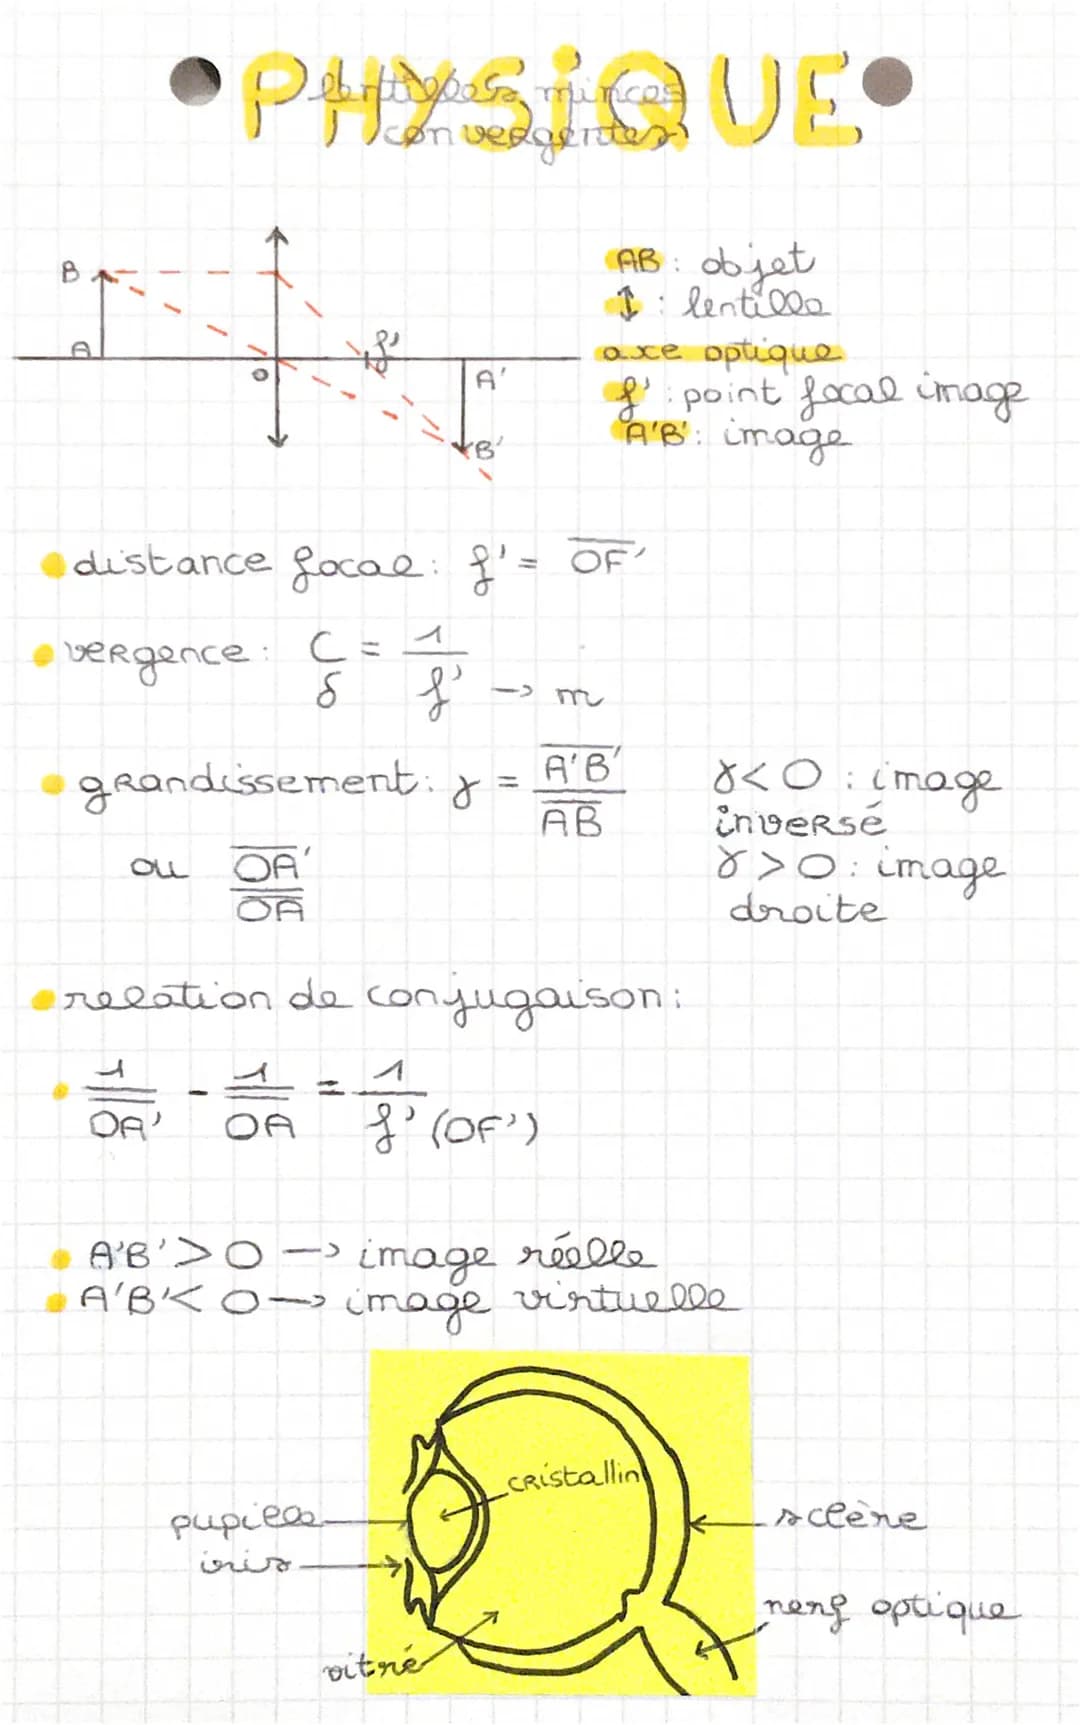 • PHYSIQUE •
lentilles minces
convergentes
B
A
O
f'
A'
B'
AB : objet
↕ : lentille
axe optique
f' : point focal image
A'B' : image
• distance focal : f' = OF'
• vergence : C = 1
δ f' → m
• grandissement : γ = A'B'
AB
ou OA'
OA
γ < 0 : image
inversé
γ > 0 : image
droite
• relation de conjugaison :
• 1/OA' - 1/OA = 1/f' (OF')
• A'B' > 0 → image réelle
• A'B' < 0 → image virtuelle
cristallin
pupille
iris
sclère
nerf optique
vitré